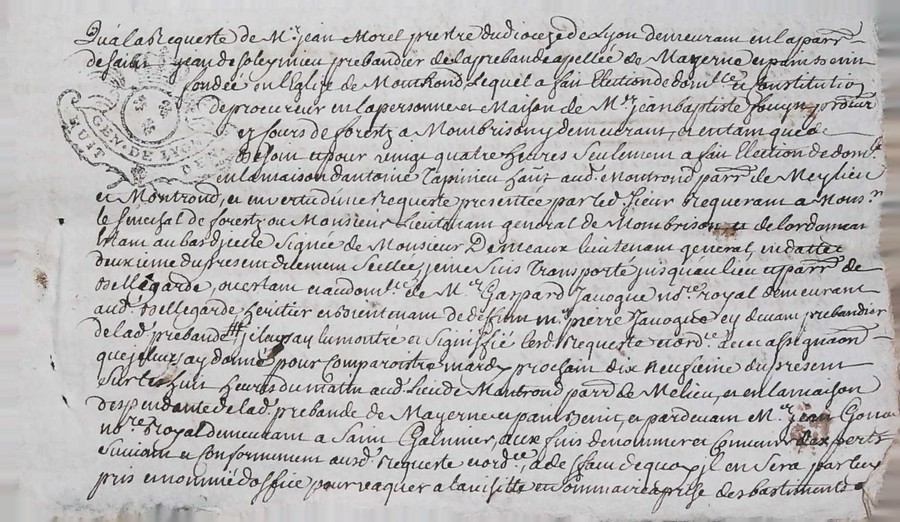 Qu'à la Requeste de Mr jean Morel prestre du dioceze de Lyon demeurant en la parr.
de saint jean de Soleymieu prebandier de la prebande apellée de Mayerne et pain benit
fondée en l'Eglise de Montrond Lequel a fait Election de dom.lle et Constitution
de procureur en la personne et Maison de Mr jean baptiste procur
es Cours de forestz a Montbrison y demeurant, et en tant que de
besoin et pour vingt quatre heures Seulement a fait Election de dom.le
en la maison d'antoine Tapinieu haut aud. Montrond parr. de Meylieu
et Montrond, et en vertu d'une Requeste presentée par led. Sieur Requerant a Mons.r
le senechal de forestz ou Monsieur Lieutenant general de Montbrison et de lordonnan
estant au bas d'icelle Signée de Monsieur Demeaux lieutenant general, en datte
deuxième du present duement scellée, je me suis Transporté jusqu'au lieu et parr. de
Bellegarde, ou estant et au dom.lle de Mr Gaspard Javoque no.re royal demeurant
aud. Bellegarde heritier et bientenant de deffunt Mr pierre Javoque cy devant prebandier
de lad. prebande # je luy ay montré et signiffié lesd. requeste et ord.ce avec assignaon
que je luy ay donné pour comparoitre mardy prochain dix neufieme du present
Sur les huit heures du matin aud. Lieu de Montrond parr. de Melieu, et en la maison
despendante de lad. prebande de Mayerne et pain benit, et pardevant Mr jean
no.re Royal demeurant a Saint Galmier, aux fins de nommer et convenir d'experts
Suivant et conformement ausd. Requeste et ord.ce, a deffaut de quoy il en sera par luy
pris et nommé d'office pour vaquer a la visitte et sommaire aprise des bastiments
GEN. DE LYON
HUIT DEN